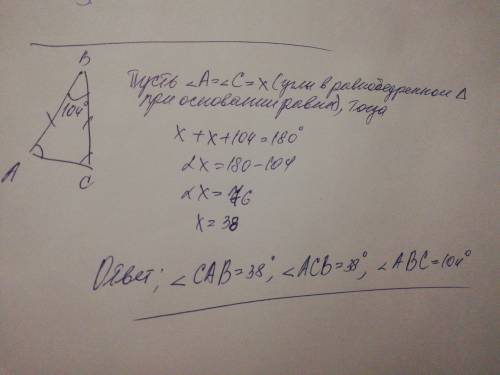 B
104°
A
C
Пусть ∠A=∠C=x (углы в равнобедренном Δ
при основании равны), тогда
x+x+104=180°
2x=180-104
2x=76
x=38
Ответ; ∠CAB=38°; ∠ACB=38°; ∠ABC=104°